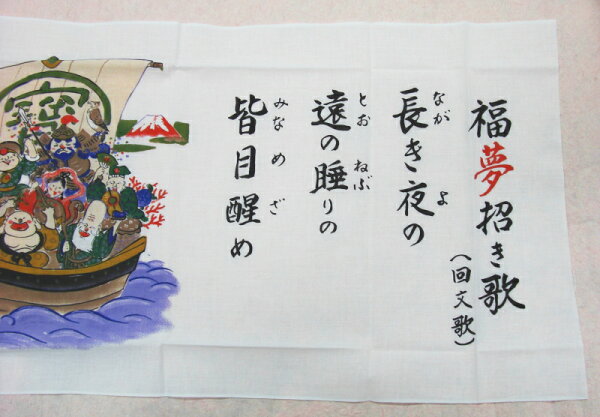 福夢招き歌
(回文歌)
長き夜の
なが よ
遠の睡りの
とお ねぶ
皆目醒め
みなめざ
寳